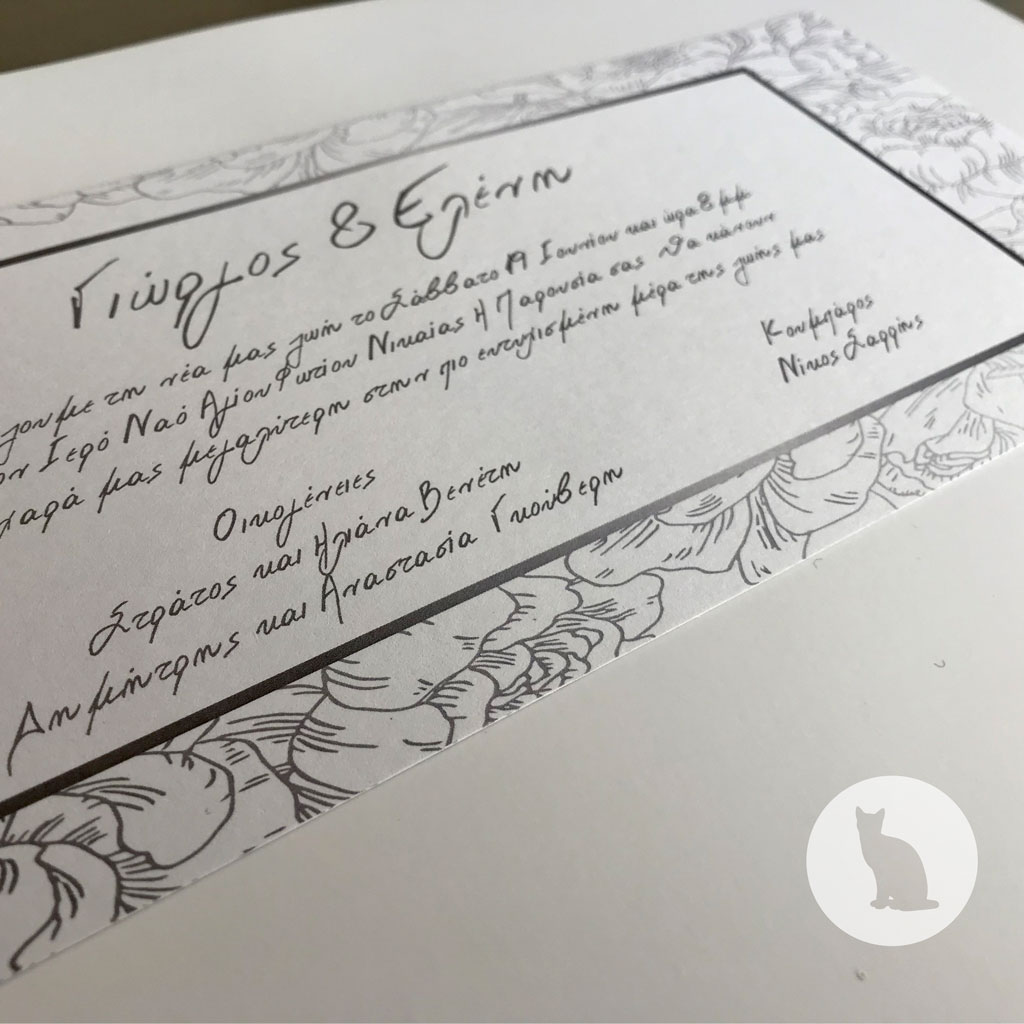 Γιώργος & Ελένη
με τη νέα μας ζωή το Σάββατο 19 Ιουνίου και ώρα 8 μμ
Ιερό Ναό Αγίου Φωτίου Νικαίας Η Παρουσία σας θα κάνουν
χαρά μας μεγαλύτερη στην πιο ευτυχισμένη μέρα της ζωής μας
Κουμπάρος
Νίκος Σαρρής
Οικογένειες
Στράτος και Ηλιάνα Βενέτη
Δημήτρης και Αναστασία Γκούβερη